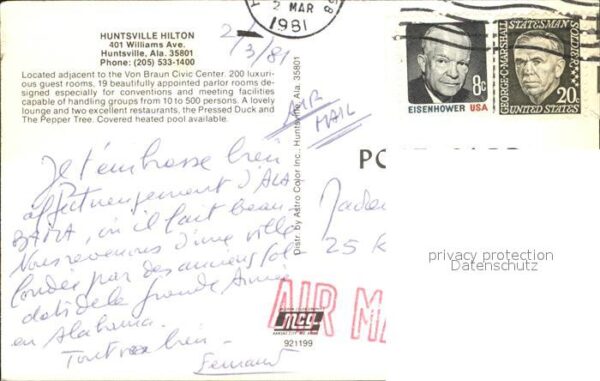 HUNTSVILLE HILTON
401 Williams Ave.
Huntsville, Ala. 35801
Phone: (205) 533-1400
Located adjacent to the Von Braun Civic Center. 200 luxuri-
ous guest rooms. 19 beautifully appointed parlor rooms de-
signed especially for conventions and meeting facilities
capable of handling groups from 10 to 500 persons. A lovely
lounge and two excellent restaurants, the Pressed Duck and
The Pepper Tree. Covered heated pool available.
2/3/81
2 MAR
1981
AIR
MAIL
Je t'embrasse bien
affectueusement d'ALA
BAMA, où il fait beau.
Nous revenons d'une ville
fondée par des anciens sol
dats de la grande Armée
en Alabama.
Tout
bien
Fernand
Distr. by Astro Color Inc., Huntsville, Ala. 35801
EISENHOWER USA
8c
GEORGE C. MARSHALL
STATESMAN
SOLDIER
20c
UNITED STATES
Madam
25 R
AIR MA
mcg
921199
privacy protection
Datenschutz